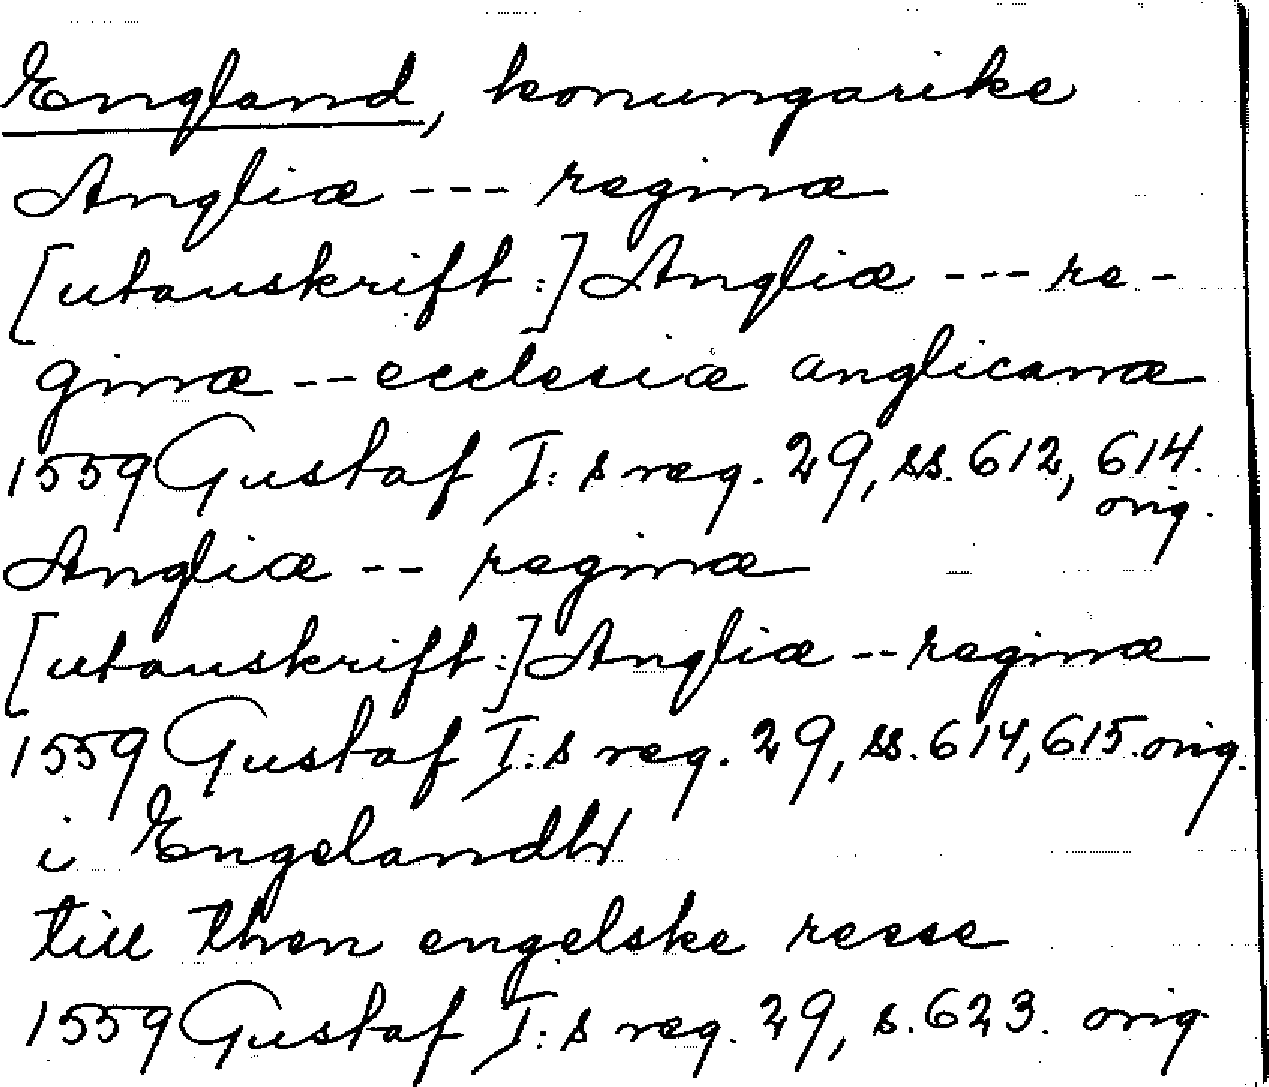 England, konungarike
Angliæ --- reginæ
[utanskrift:] Angliæ --- re-
ginæ -- ecclesiæ anglicanæ
1559 Gustaf I:s reg. 29, ss. 612, 614.
orig.
Angliæ -- reginæ
[utanskrift:] Angliæ -- reginæ
1559 Gustaf I:s reg. 29, ss. 614, 615. orig.
i Engelandh
till then engelske reese
1559 Gustaf I:s reg. 29, s. 623. orig